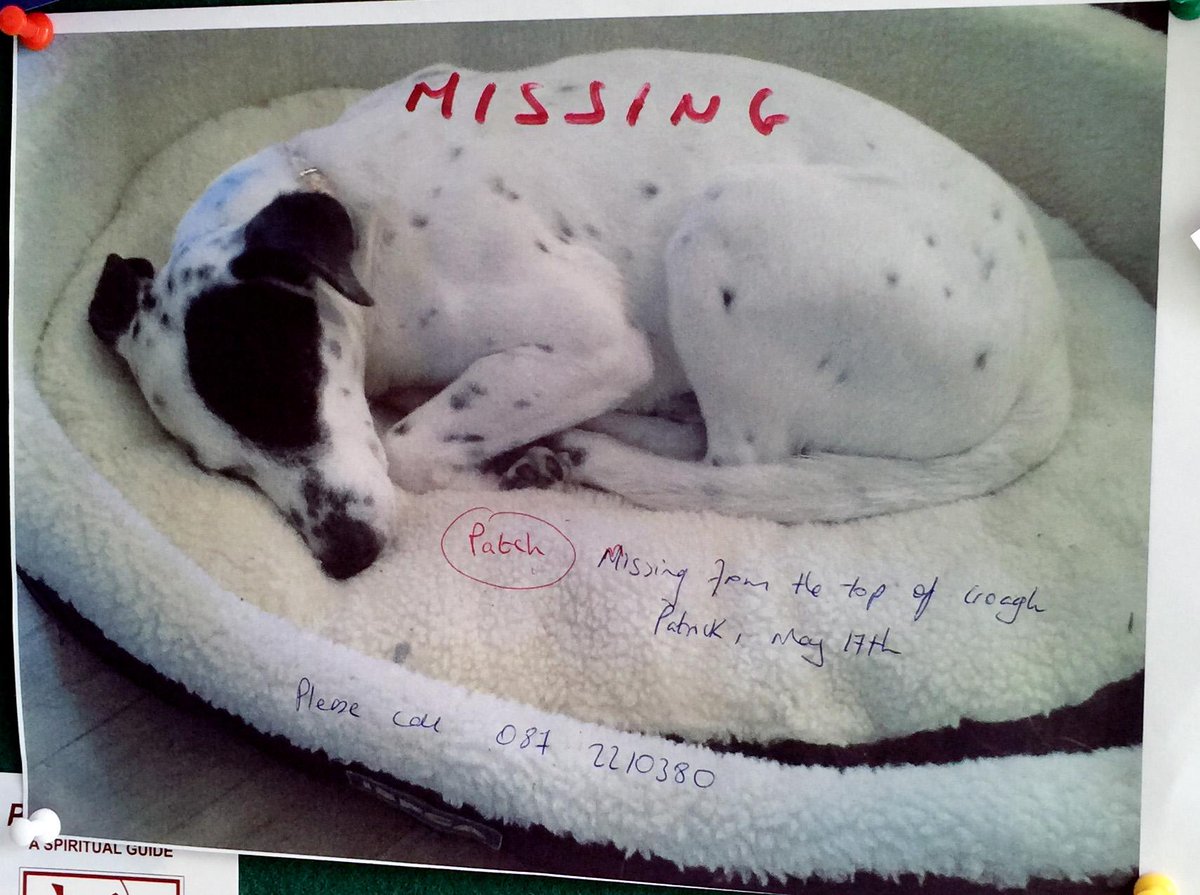 MISSING
Patch
Missing from the top of Croagh
Patrick, May 17th
Please call 087 2210380
A SPIRITUAL GUIDE